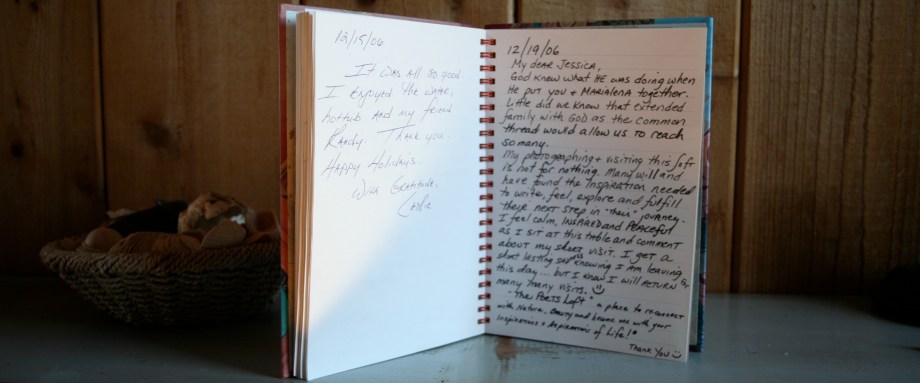 12/15/06
It was all so good.
I enjoyed the water,
hottub and my friend
Randy. Thank you.
Happy Holidays.
With Gratitude,
12/19/06
My dear Jessica,
God knew what HE was doing when
He put you + Marialena together.
Little did we know that extended
family with GOD as the common
thread would allow us to reach
so many.
My photographing + visiting this loft
is not for nothing. Many will and
have found the inspiration needed
to write, feel, explore and fulfill
their next step in "their" journey.
I feel calm, INSPIRED and PEACEFUL
as I sit at this table and comment
about my short visit. I get a
short lasting sad knowing I am leaving
this day... but I know I will RETURN for
many many visits.
"The Poets Loft" a place to reconnect
with Nature, Beauty and become one with your
Inspirations + Aspirations of Life!"
Thank You